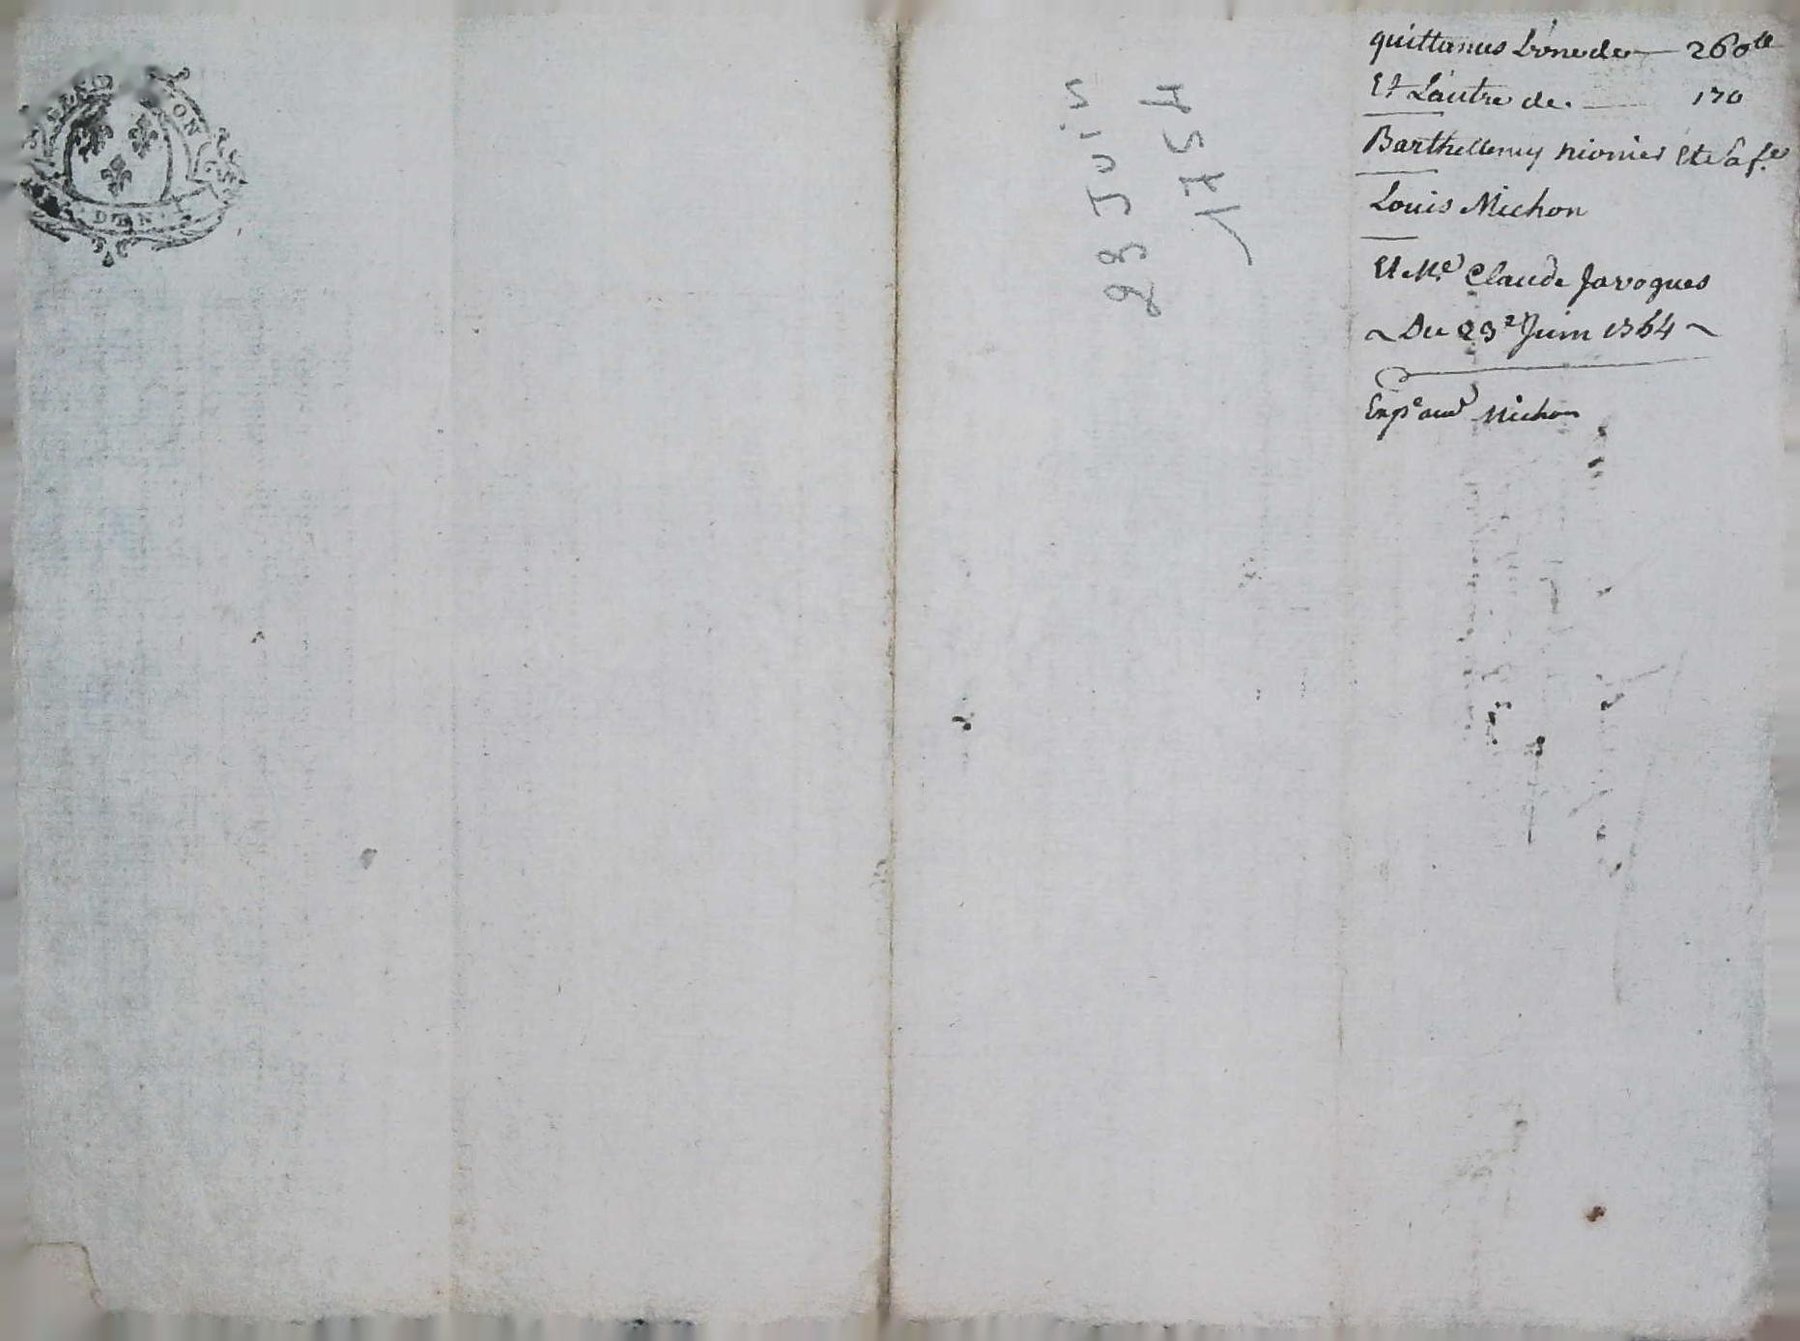 ON
D'EN
23 Juin
1754
quittances L'une de 260ll
Et L'autre de. 170
Barthellemy nionier Et Sa fe
Louis Michon
Et Me Claude Javogues
~ Du 23e Juin 1764 ~
Expe aud Michon